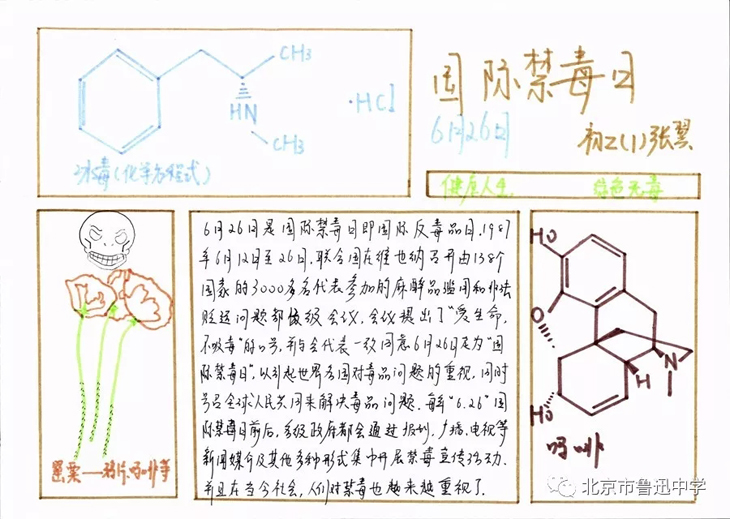 CH₃
HN
CH₃
·HCl
冰毒(化学方程式)
国际禁毒日
6月26日
初二(1)张翼
健康人生 绿色无毒
6月26日是国际禁毒日即国际反毒品日,1987
年6月12日至26日,联合国在维也纳召开由138个
国家的3000多名代表参加的麻醉品滥用和非法
贩运问题部级会议,会议提出了"爱生命,
不吸毒"的口号,并与会代表一致同意6月26日定为"国
际禁毒日",以引起世界各国对毒品问题的重视,同时
号召全球人民共同来解决毒品问题.每年"6.26"国
际禁毒日前后,各级政府都会通过报刊、广播、电视等
新闻媒介及其他多种形式集中开展禁毒宣传活动.
并且在当今社会,人们对禁毒也越来越重视了.
罂粟——鸦片、吗啡等
HO
O
H
N
HO
吗啡
北京市鲁迅中学